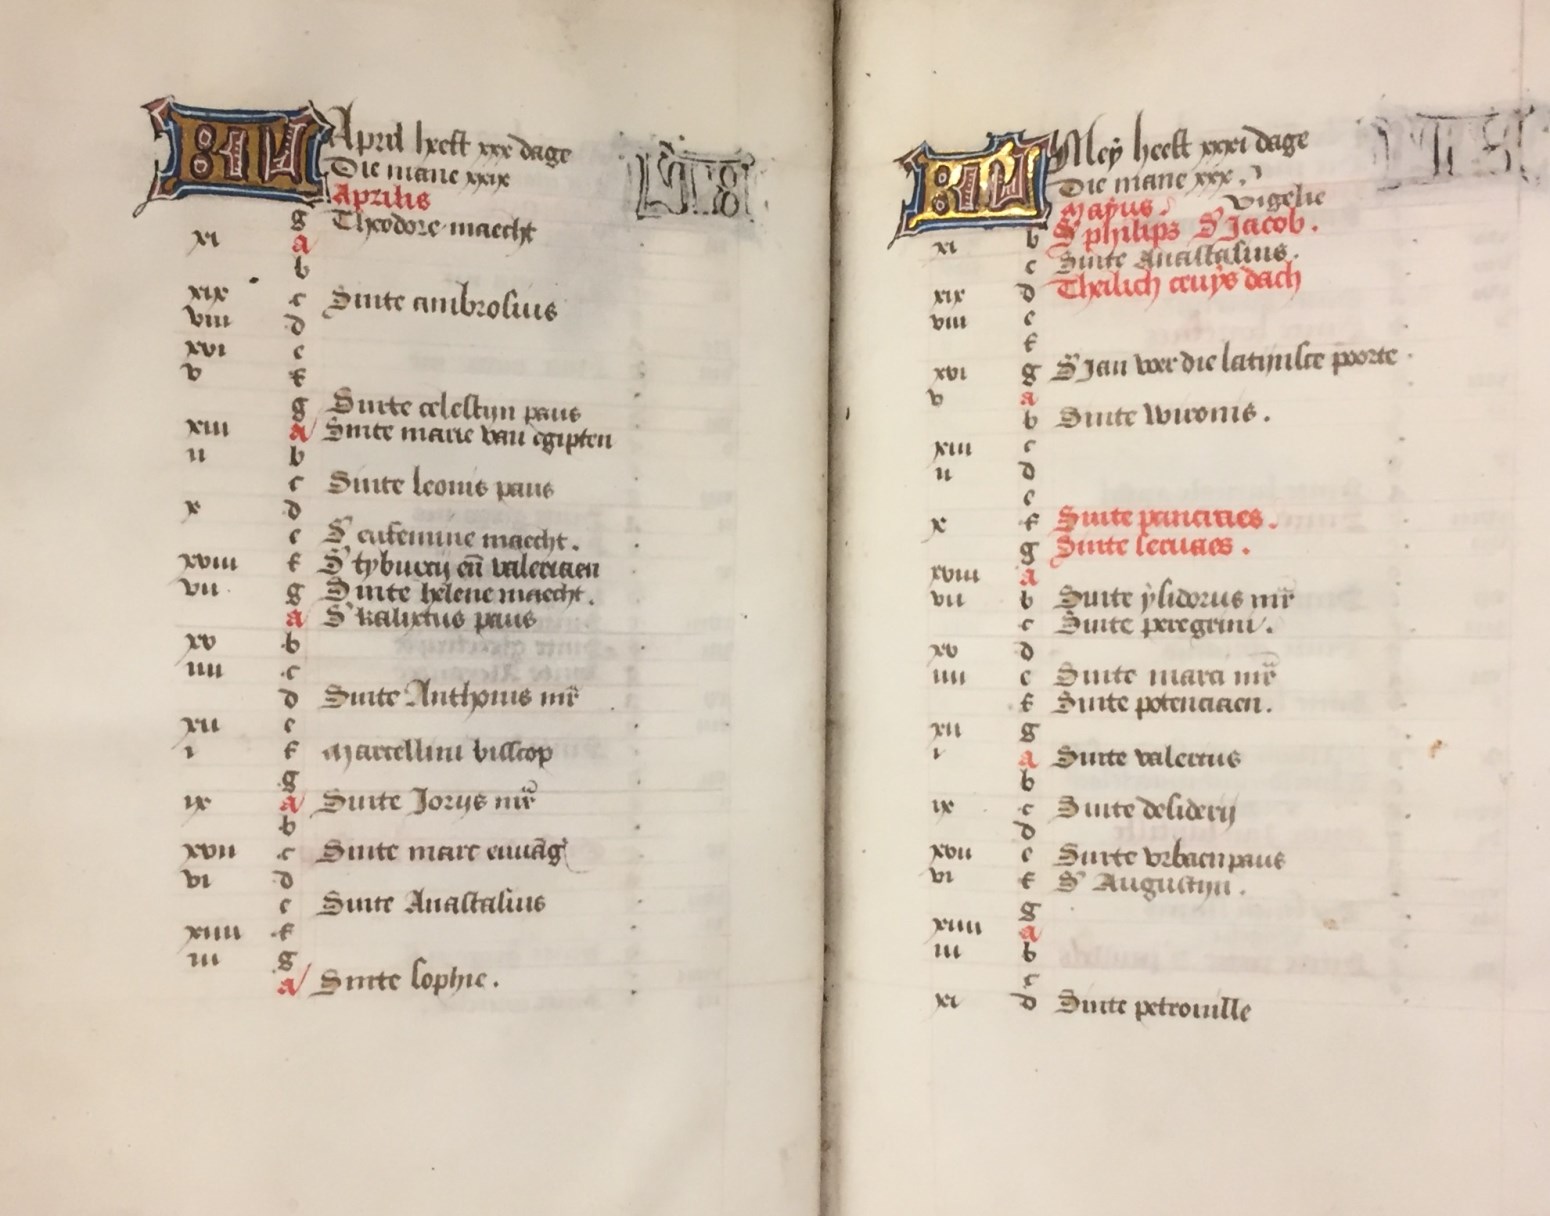 KL April heeft xxx dage
Die mane xxix
Aprilis
g Theodore maecht
xi a
b
xix c Sinte ambrosius
viii d
xvi e
v f
g Sinte celestijn paus
xiii a Sinte marie van egipten
ii b
c Sinte leonis paus
x d
e S' eufemine maecht.
xviii f S' tyburcij en valeriaen
vii g Sinte helene maecht.
a S' kalixtus paus
xv b
iiii c
d Sinte Anthonis mr
xii e
i f Marcellini bisscop
g
ix a Sinte Jorijs mr
b
xvii c Sinte marc euuāg
vi d
e Sinte Anastasius
xiiii f
iii g
a Sinte sophie.
KL Meÿ heeft xxxi dage
Die mane xxx.
Maÿus. vigelie
xi b S' philips S' Jacob.
c Sinte Anastasius.
xix d Theilich cruÿs dach
viii e
f
xvi g S' Jan voer die latijnsce poorte
v a
b Sinte wironis.
xiii c
ii d
e
x f Sinte pancraes.
g Sinte seruaes.
xviii a
vii b Sinte ÿsidorus mr
c Sinte peregrini.
xv d
iiii e Sinte marci mr
f Sinte potenciaen.
xii g
i a Sinte valerius
b
ix c Sinte desiderij
d
xvii e Sinte vrbaen paus
vi f S' Augustijn.
g
xiiii a
iii b
c
xi d Sinte petronille